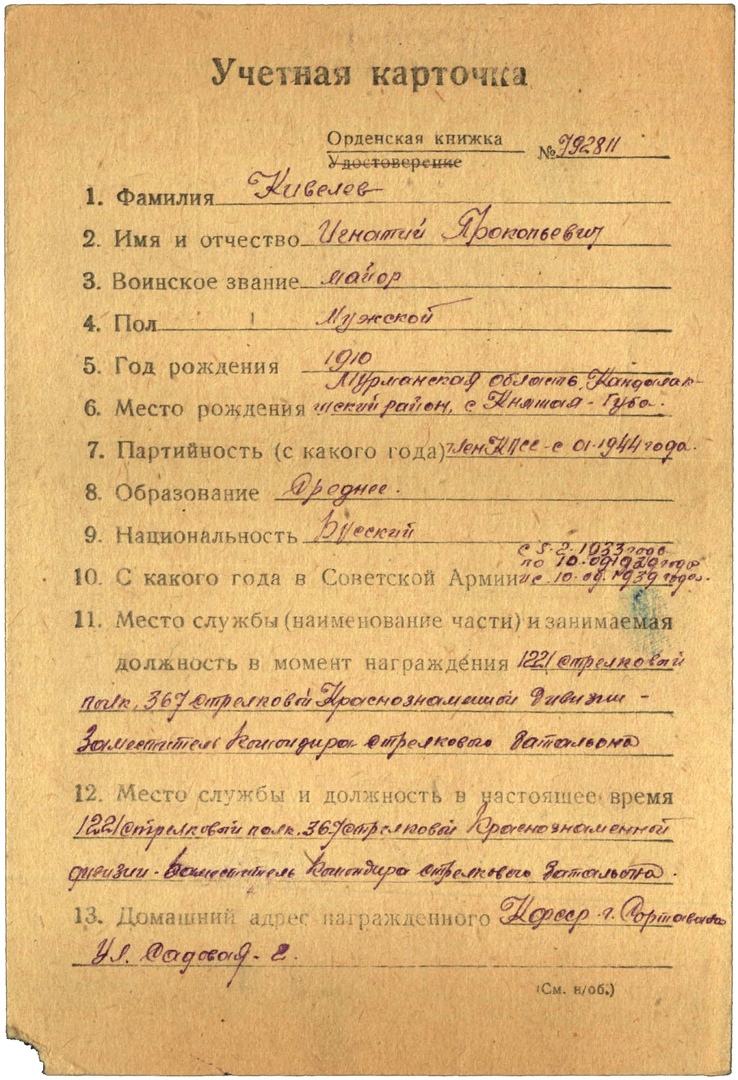 Учетная карточка
Орденская книжка
Удостоверение
№ 792811
1. Фамилия Кивелев
2. Имя и отчество Игнатий Прокопьевич
3. Воинское звание майор
4. Пол Мужской
5. Год рождения 1910
Мурманская область, Кандалак-
6. Место рождения шский район, с Княжая-Губа.
7. Партийность (с какого года) член КПСС - с 01-1944 года.
8. Образование Среднее.
9. Национальность Русский
с 5.2.1933 года
по 10.09.1939 года
10. С какого года в Советской Армии и с 10.09.1939 года.
11. Место службы (наименование части) и занимаемая
должность в момент награждения 1221 стрелковый
полк, 367 стрелковой Краснознаменной Дивизии -
Заместитель Командира стрелкового батальона
12. Место службы и должность в настоящее время
1221 стрелковый полк, 367 стрелковой Краснознаменной
дивизии - Заместитель Командира стрелкового батальона.
13. Домашний адрес награжденного КФССР г. Сортавала
Ул. Садовая - 2.
(См. н/об.)